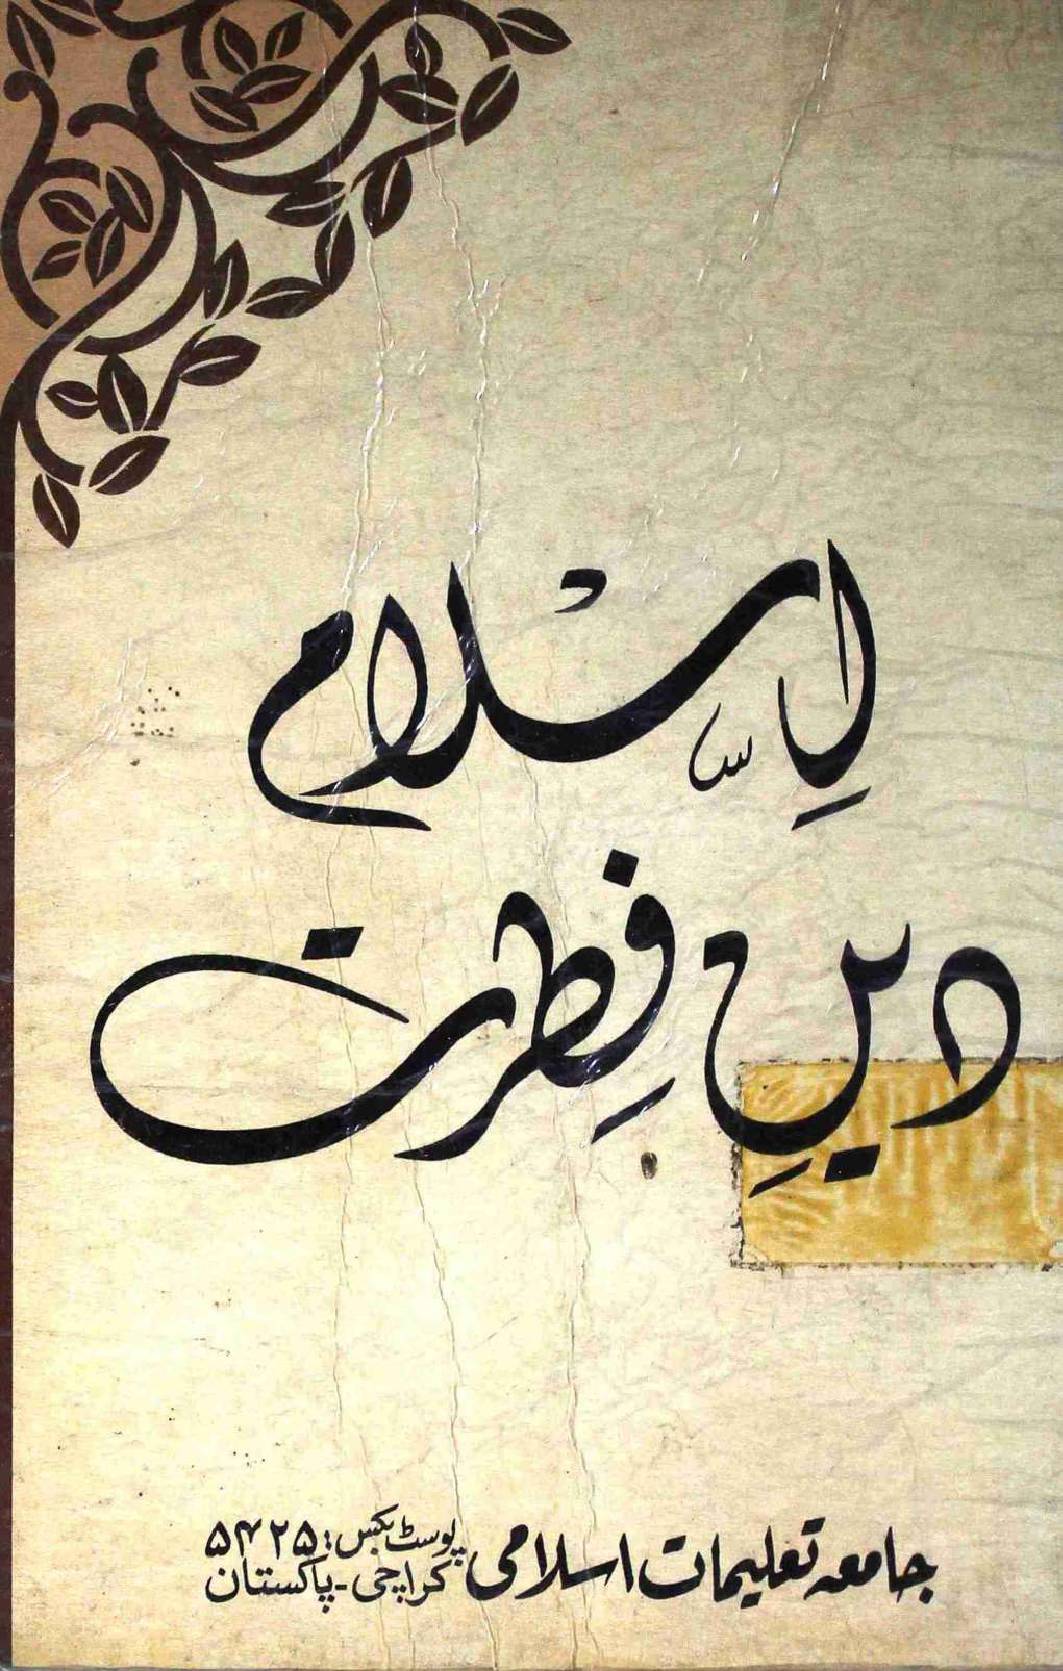 اِسْلام
دینِ فِطرت
جامعہ تعلیمات اسلامی پوسٹ بکس: ۵۴۲۵
کراچی - پاکستان